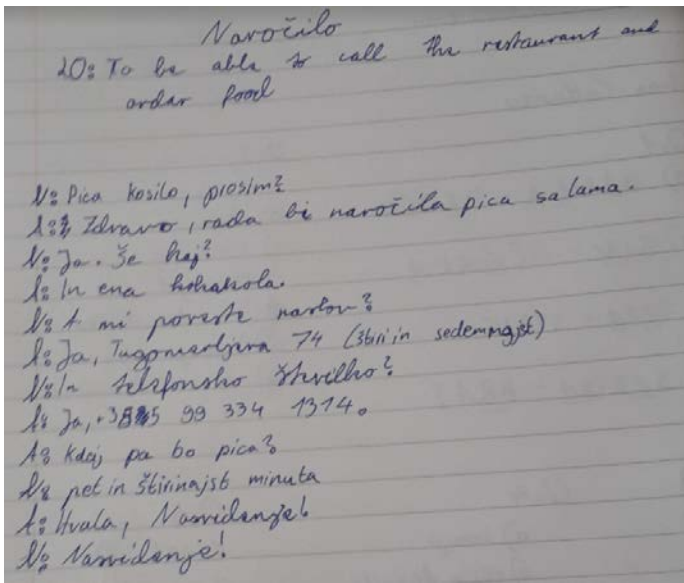 Naročilo
LO: To be able to call the restaurant and
ordar food
N: Pica kosilo, prosim?
A: Zdravo, rada bi naročila pica salama.
N: Ja. Še kaj?
A: In ena kokakola.
N: A mi poveste naslov?
A: Ja, 74 (štiri in sedemnajst)
N: In telefonsko številko?
A: Ja, 99 334 1314.
A: Kdaj pa bo pica?
N: pet in štirinajst minuta
A: Hvala, Nasvidenje!
N: Nasvidenje!